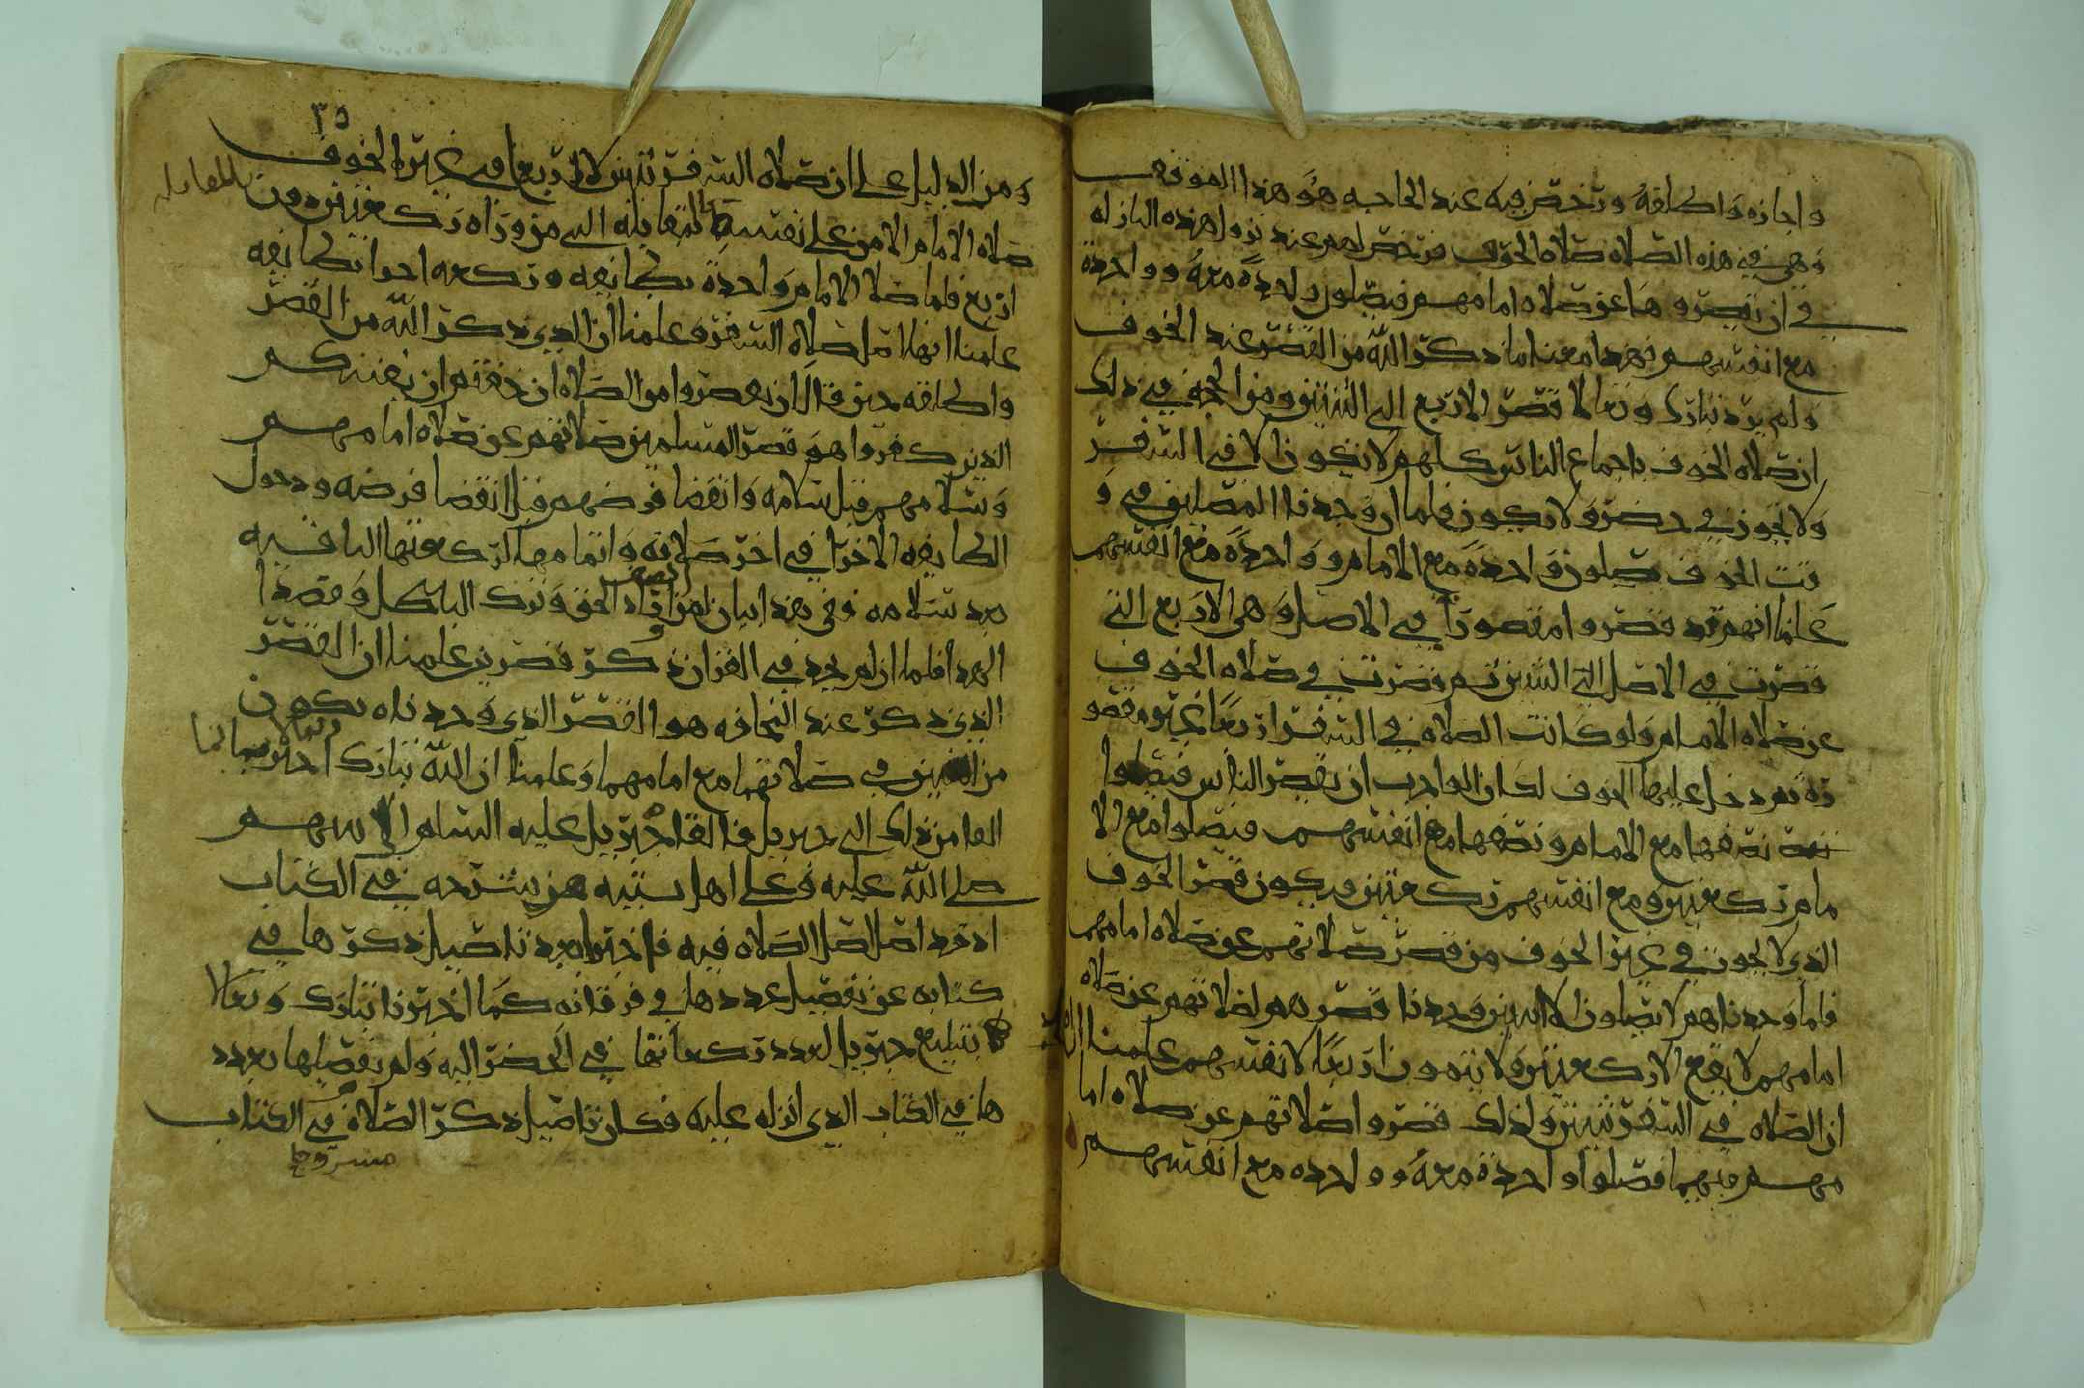 واجازه واطلقه ورخص فيه عند الحاجه هو هذا الموقف
وهي في هذه الصلاه صلاه الخوف فرخص لهم عند نزول هذه النازله
في ان يقصروها عن صلاه امامهم فيصلون واحدة معه وواحدة
مع انفسهم فهذا معنا ما ذكر الله من القصر عند الخوف
ولم يرد تبارك وتعالا قصر الاربع الى اثنتين ومن الحجه في ذلك
ان صلاه الخوف باجماع الناس كلهم لا تكون الا في السفر
ولا تجوز في حضر ولا تكون فلما ان وجدنا المصلين في و
قت الخوف يصلون واحدة مع الامام وواحدة مع انفسهم
علمنا انهم قد قصروا مقصورا في الاصل وهي الاربع التي
قصرت في الاصل الى اثنتين ثم قصرت في صلاه الخوف
عن صلاه الامام ولو كانت الصلاه في السفر اربعا غير مقصو
رة ثم دخل عليها الخوف لكان الواجب ان يقصر الناس فيصلوا
نصفها مع الامام ونصفها مع انفسهم فيصلوا مع الا
مام ركعتين ومع انفسهم ركعتين فيكون قصر الخوف
الذي لا يجوز في غير الخوف من قصر صلاتهم عن صلاه امامهم
فلما وجدناهم لا يصلون الا اثنتين وجدنا قصرهم لصلاتهم عن صلاه
امامهم لا يقع الا ركعتين ولا يتمون اربعا لانفسهم علمنا
ان الصلاه في السفر ثنتين ولذلك قصروا صلاتهم عن صلاه اما
مهم فيهما فصلوا واحدة معه وواحده مع انفسهم
٣٥
ومن الدليل على ان صلاه السفر ثنتين لا اربع في غير الخوف
صلاه الامام الامن على نفسه المقابله الى من وراه ركعتين دون
اربع فلما صلا الامام واحدة بطائفه وركعه اخرا بطائفه
علمنا انها اصل صلاه السفر وعلمنا ان الذي ذكر الله من القصر
واطلقه حين قال ان تقصروا من الصلاه ان خفتم ان يفتنكم
الذين كفروا هو قصر المسلمين صلاتهم عن صلاه امامهم
وسلامهم قبل سلامه وانقضا فرضهم قبل انقضا فرضه ودخول
الطايفه الاخرا في اخر صلاته واتمامها لركعتها الباقيه
بعد سلامه ففي هذا بيان لمن اراد الحق وترك الباطل وقصد ا
لهدا فلما ان لم نجد في القران ذكر قصرين علمنا ان القصر
الذي ذكر عند المخافه هو القصر الذي وجدناه يكون
من اثنين في صلاتهما مع امامهما وعلمنا ان الله تبارك
القا من ذلك الى جبريل فالقا جبريل عليه السلام الى
صلى الله عليه وعلى اهل بيته من شرحه في الكتاب
اذ قد اصل اصل الصلاه فيه فاخبرا بعد تاصيل ذكرها في
كتابه عن تفصيل عددها في فرقانه كما اخبرنا تبارك وتعالا
بتبليغ جبريل لعدد ركعاتها في الحضر اليه ولم يفصلها بعدد
ها في الكتاب الذي انزله عليه فكان تاصيل ذكر الصلاه في الكتاب
مسروحا